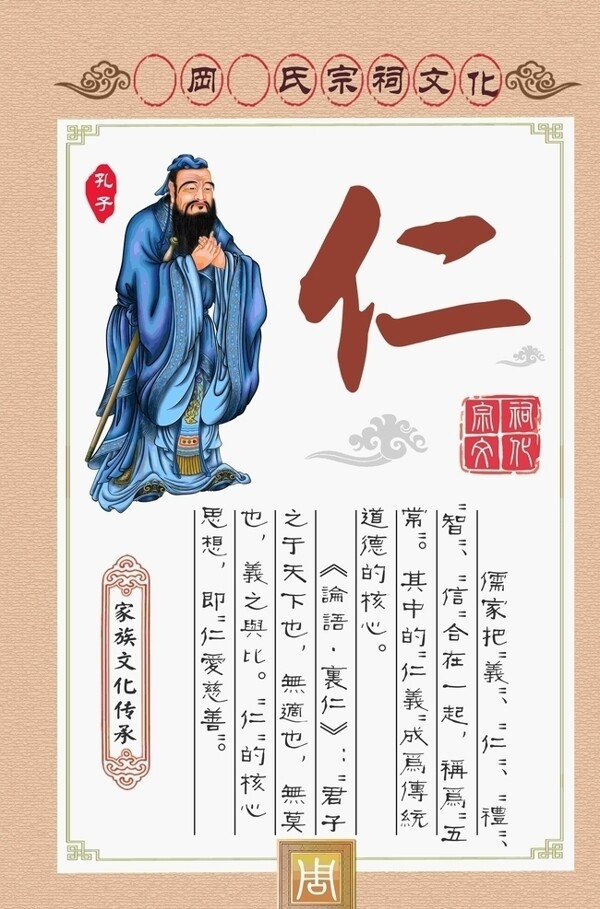 岡 氏宗祠文化
孔子
仁
宗祠
文化
儒家把“義”、“仁”、“禮”、
“智”、“信”合在一起，稱爲“五
常”。其中的“仁義”成爲傳統
道德的核心。
《論語·裏仁》：“君子
之于天下也，無適也，無莫
也，義之與比。“仁”的核心
思想，即“仁愛慈善”。
家族文化传承
周